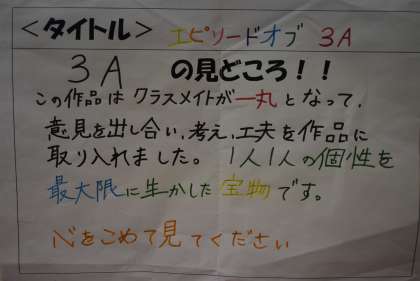 ＜タイトル＞ エピソードオブ 3A
3A の見どころ！！
この作品は クラスメイトが一丸となって、
意見を出し合い、考え、工夫を作品に
取り入れました。1人1人の個性を
最大限に生かした宝物です。
心をこめて見てください